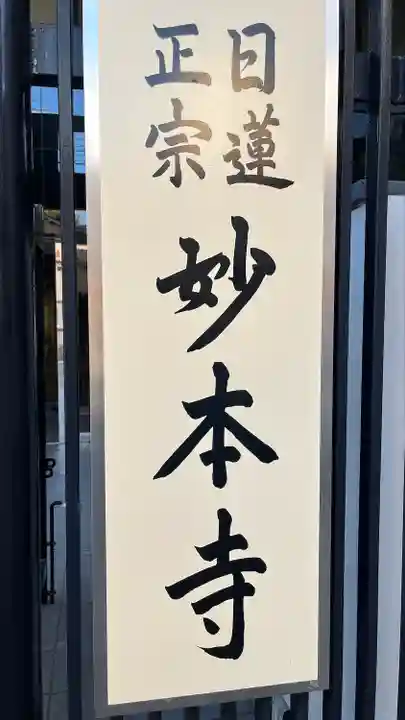 日蓮
正宗
妙本寺